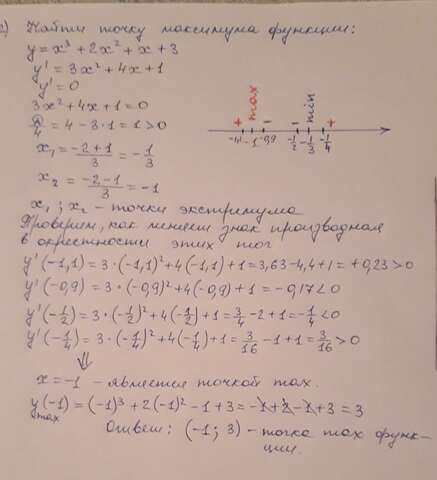 c) Найти точку максимума функции:
y = x³ + 2x² + x + 3
y' = 3x² + 4x + 1
y' = 0
3x² + 4x + 1 = 0
D/4 = 4 - 3·1 = 1 > 0
x₁ = (-2+1)/3 = -1/3
x₂ = (-2-1)/3 = -1
+ max - - min +
-1,1 -1 -0,9 -1/2 -1/3 -1/4
x₁; x₂ - точки экстремума
Проверим, как меняем знак производная
в окрестности этих точ
y'(-1,1) = 3·(-1,1)² + 4(-1,1) + 1 = 3,63 - 4,4 + 1 = +0,23 > 0
y'(-0,9) = 3·(-0,9)² + 4(-0,9) + 1 = -0,17 < 0
y'(-1/2) = 3·(-1/2)² + 4(-1/2) + 1 = 3/4 - 2 + 1 = -1/4 < 0
y'(-1/4) = 3·(-1/4)² + 4(-1/4) + 1 = 3/16 - 1 + 1 = 3/16 > 0
⇓
x = -1 - является точкой max.
y(-1) = (-1)³ + 2(-1)² - 1 + 3 = -1 + 2 - 1 + 3 = 3
max
Ответ: (-1; 3) - точка max функ-
ции.